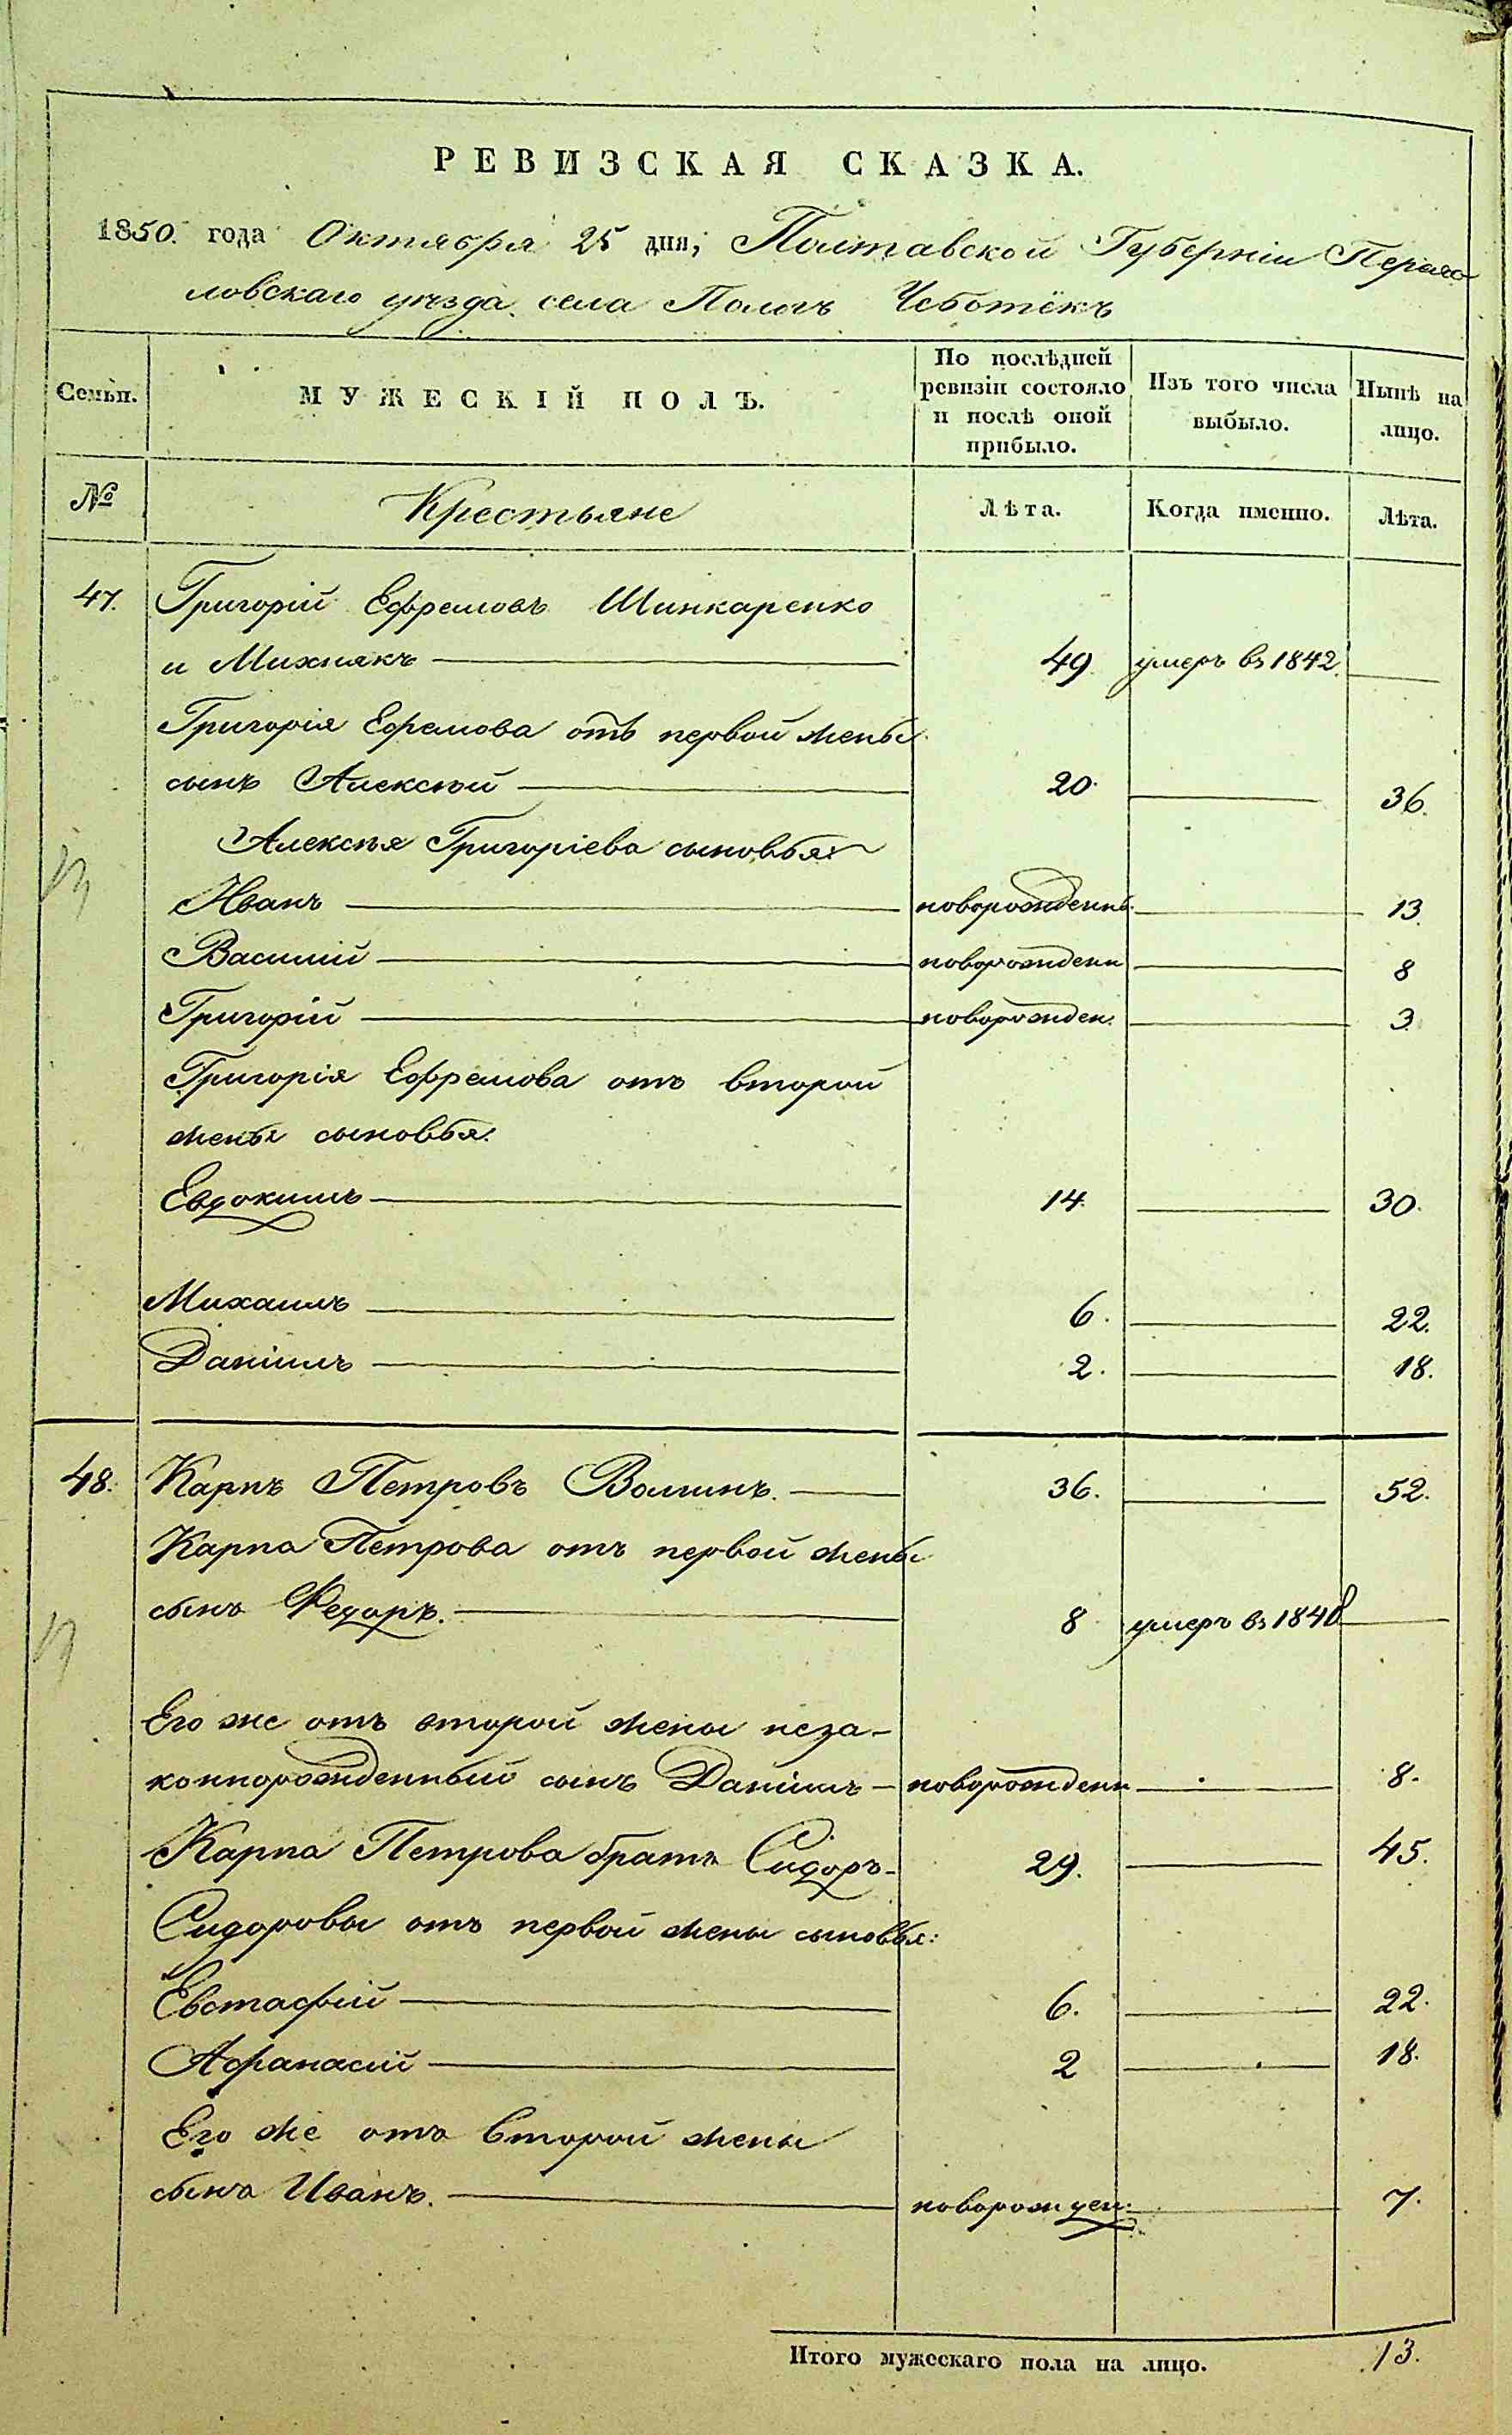 РЕВИЗСКАЯ СКАЗКА.
1850. года Октября 25 дня, Полтавской Губерніи Переяс-
ловскаго уѣзда села Пологъ Чеботёкъ
Семьи. МУЖЕСКІЙ ПОЛЪ. По послѣдней ревизіи состояло и послѣ оной прибыло. Изъ того числа выбыло. Нынѣ на лицо.
№ Крестьяне Лѣта. Когда именно. Лѣта.
47. Григорій Ефремовъ Шинкаренко
и Михнякъ 49. умеръ въ 1842.
Григорія Ефремова отъ первой жены
сынъ Алексѣй 20. 36.
Алексѣя Григоріева сыновья:
Иванъ новорожденнъ. 13.
Василій новорожденн 8
Григорій новорожден. 3.
Григорія Ефремова отъ второй
жены сыновья.
Евдокимъ 14. 30.
Михаилъ 6. 22.
Даніилъ 2. 18.
48. Карпъ Петровъ Волинъ. 36. 52.
Карпа Петрова отъ первой жены
сынъ Федоръ. 8 умеръ въ 1848
Его же отъ второй жены неза-
коннорожденный сынъ Даніилъ новорожденн 8.
Карпа Петрова братъ Сидоръ 29. 45.
Сидоровы отъ первой жены сыновья:
Евстафій 6. 22.
Афанасій 2 18.
Его же отъ второй жены
сынъ Иванъ. новорожден. 7.
Итого мужескаго пола на лицо. 13.